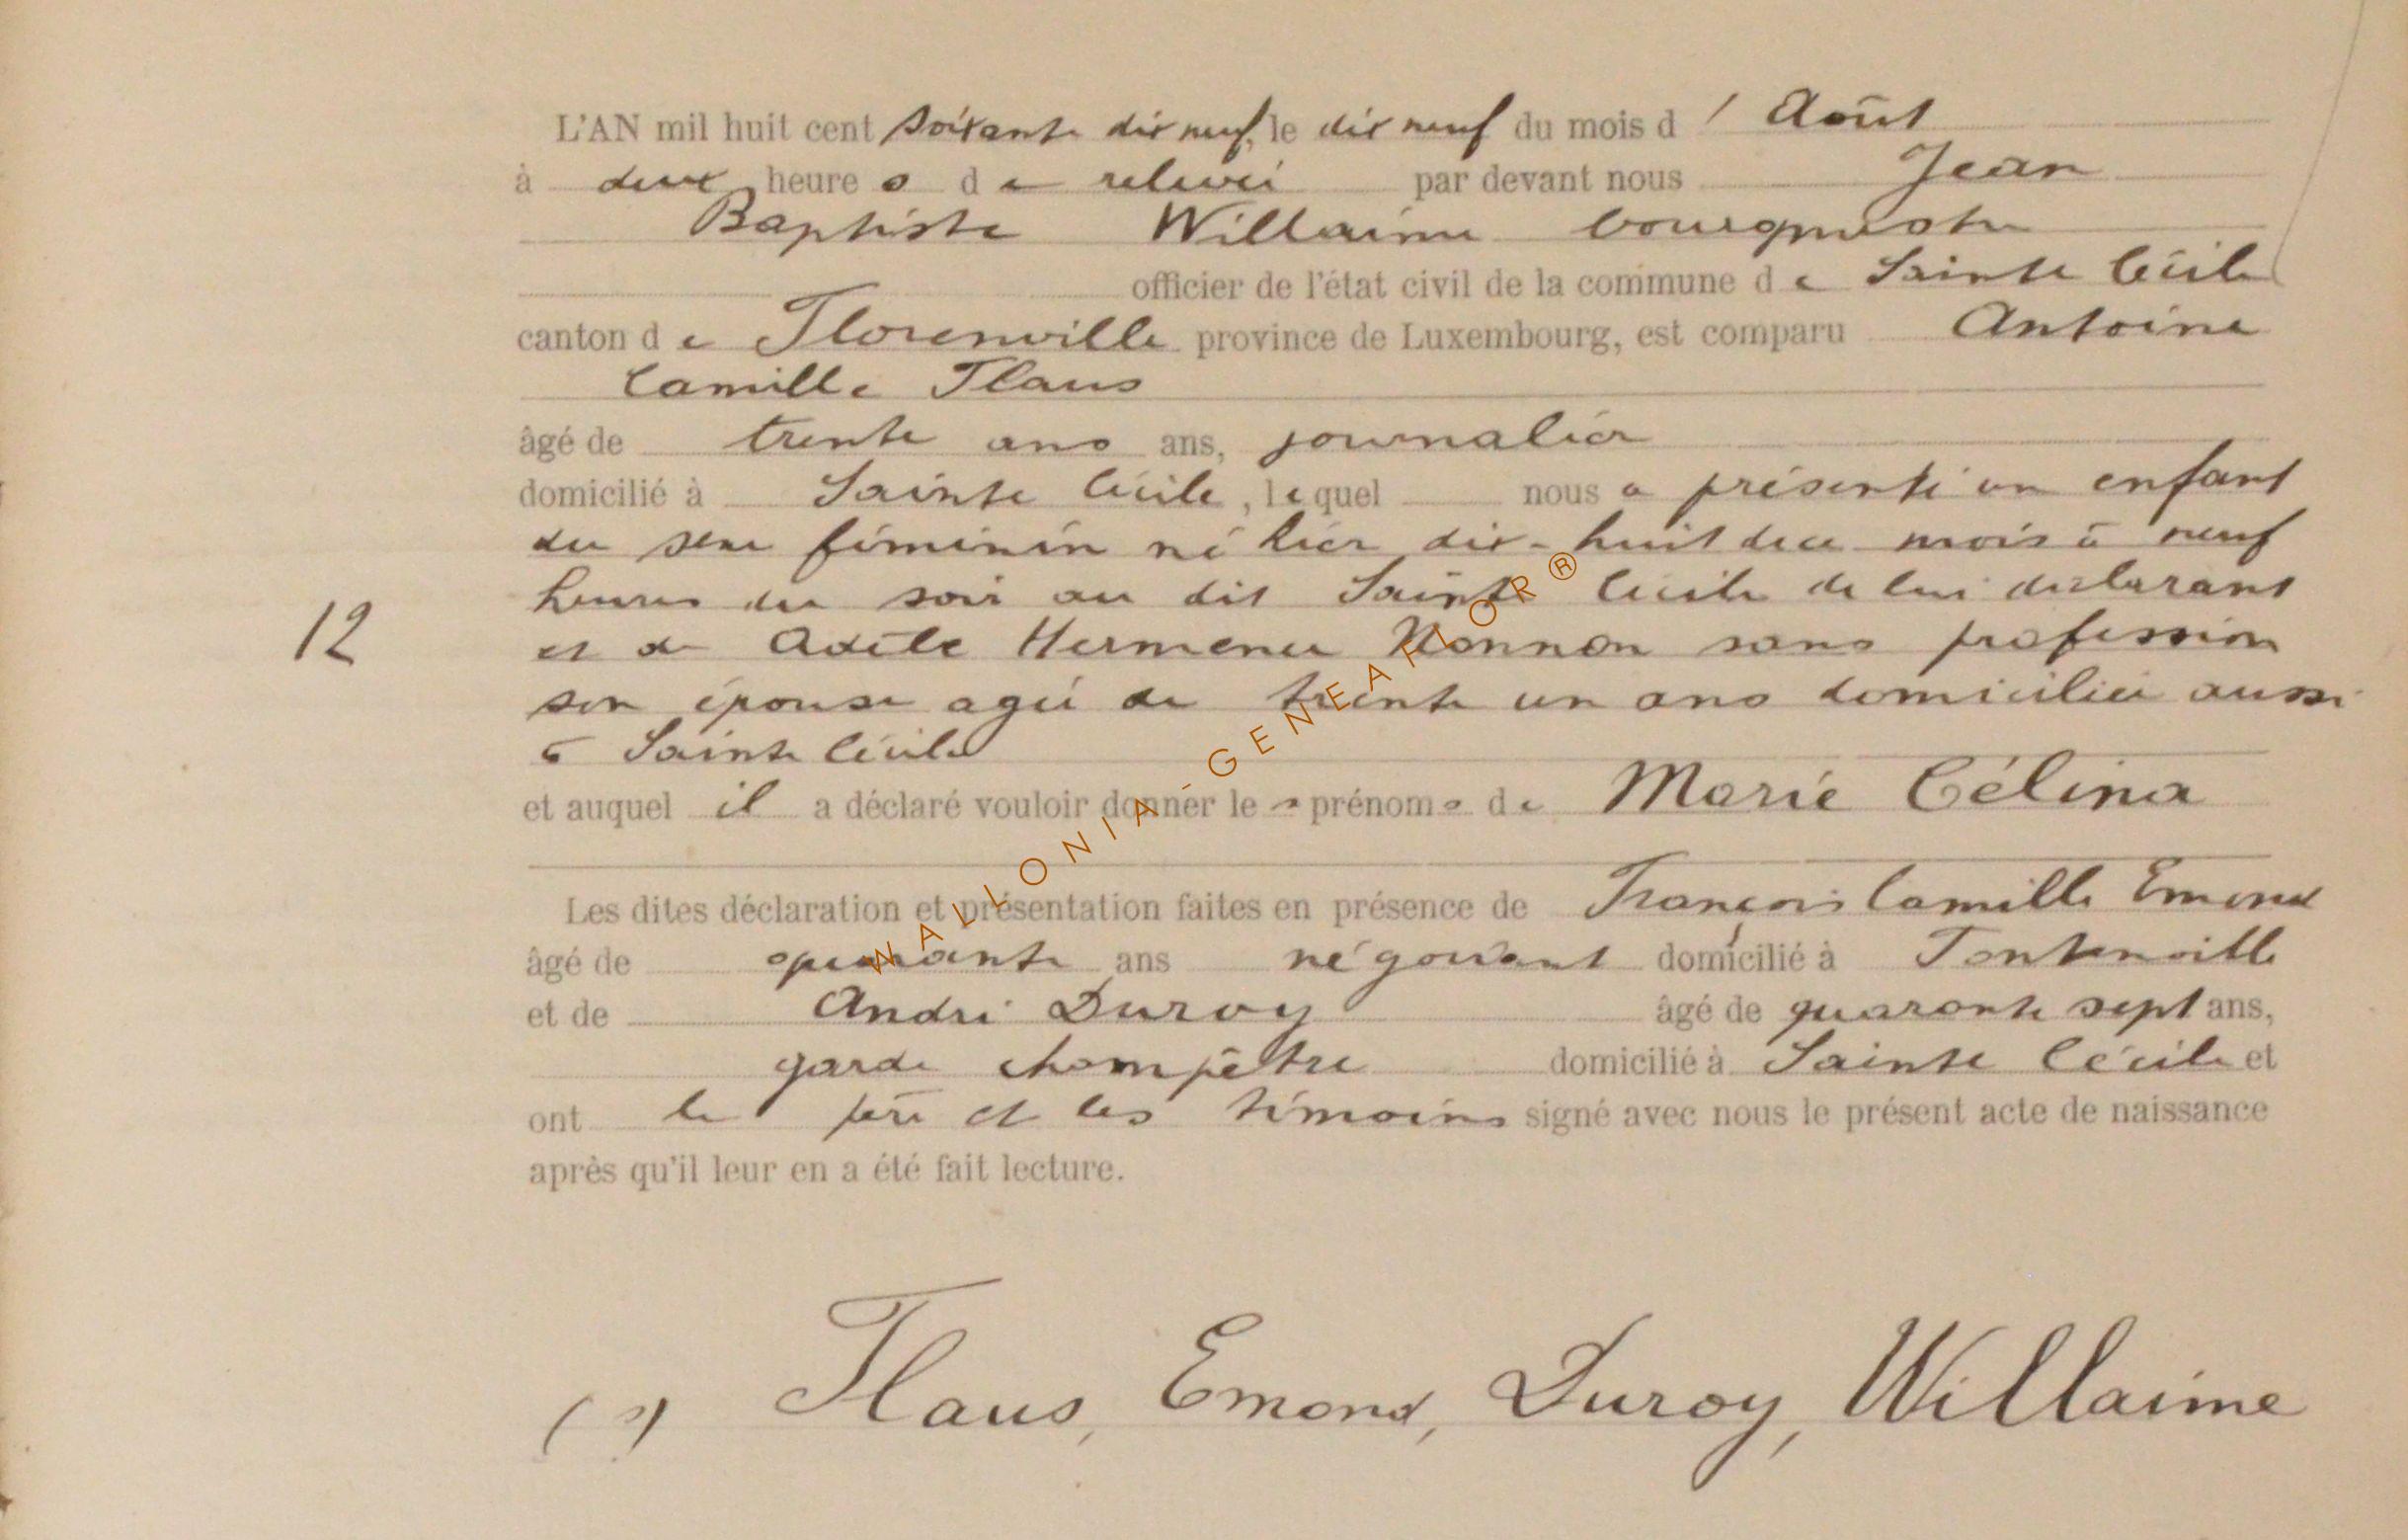 L'AN mil huit cent soixante dix neuf, le dix neuf du mois d' Août
à deux heures de relevée par devant nous Jean
Baptiste Willaime bourgmestre
officier de l'état civil de la commune de Sainte Cécile
canton de Florenville province de Luxembourg, est comparu Antoine
Camille Flaus
âgé de trente ans ans, journalier
domicilié à Sainte Cécile, lequel nous a présenté un enfant
du sexe féminin né hier dix-huit dece mois à neuf
heures du soir au dit Sainte Cécile de lui déclarant
et de Adèle Nonnon sans profession
son épouse agée de trente un ans domiciliée aussi
à Sainte Cécile
et auquel il a déclaré vouloir donner les prénoms de Marie Célina
Les dites déclaration et présentation faites en présence de François Camille Emond
âgé de quarante ans négociant domicilié à Fontenoille
et de André Duroy âgé de quarante sept ans,
garde champêtre domicilié à Sainte Cécile et
ont le père et les témoins signé avec nous le présent acte de naissance
après qu'il leur en a été fait lecture.
12
(s) Flaus, Emond, Duroy, Willaime
WALLONIA-GENEAFLOR®